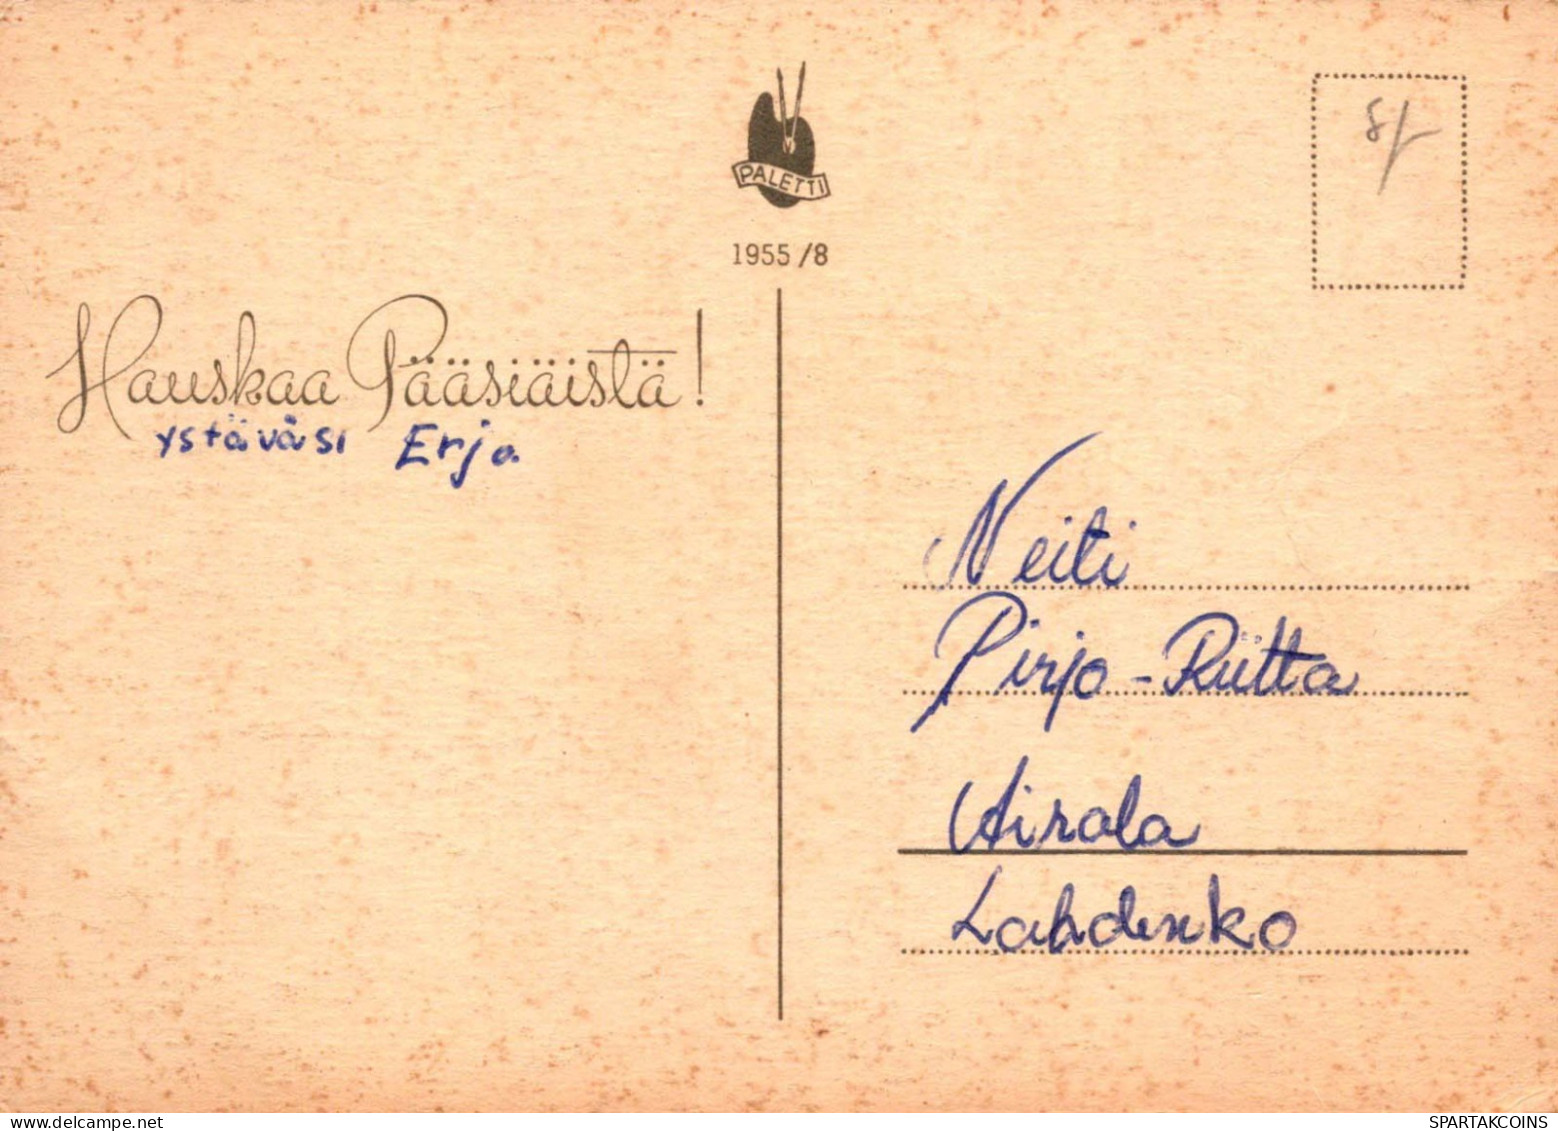 PALETTI
1955/8
8/-
Hauskaa Pääsiäistä!
ystäväsi Erja
Neiti
Pirjo-Riitta
Airala
Lahdenko
SPARTAKCOINS